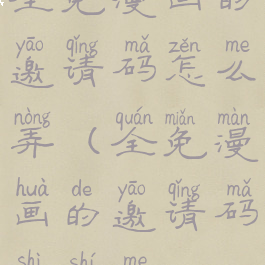 全免漫画的
yāo qǐng mǎ zěn me
邀请码怎么
nòng quán miǎn màn
弄（全免漫
huà de yāo qǐng mǎ
画的邀请码
shì shí me